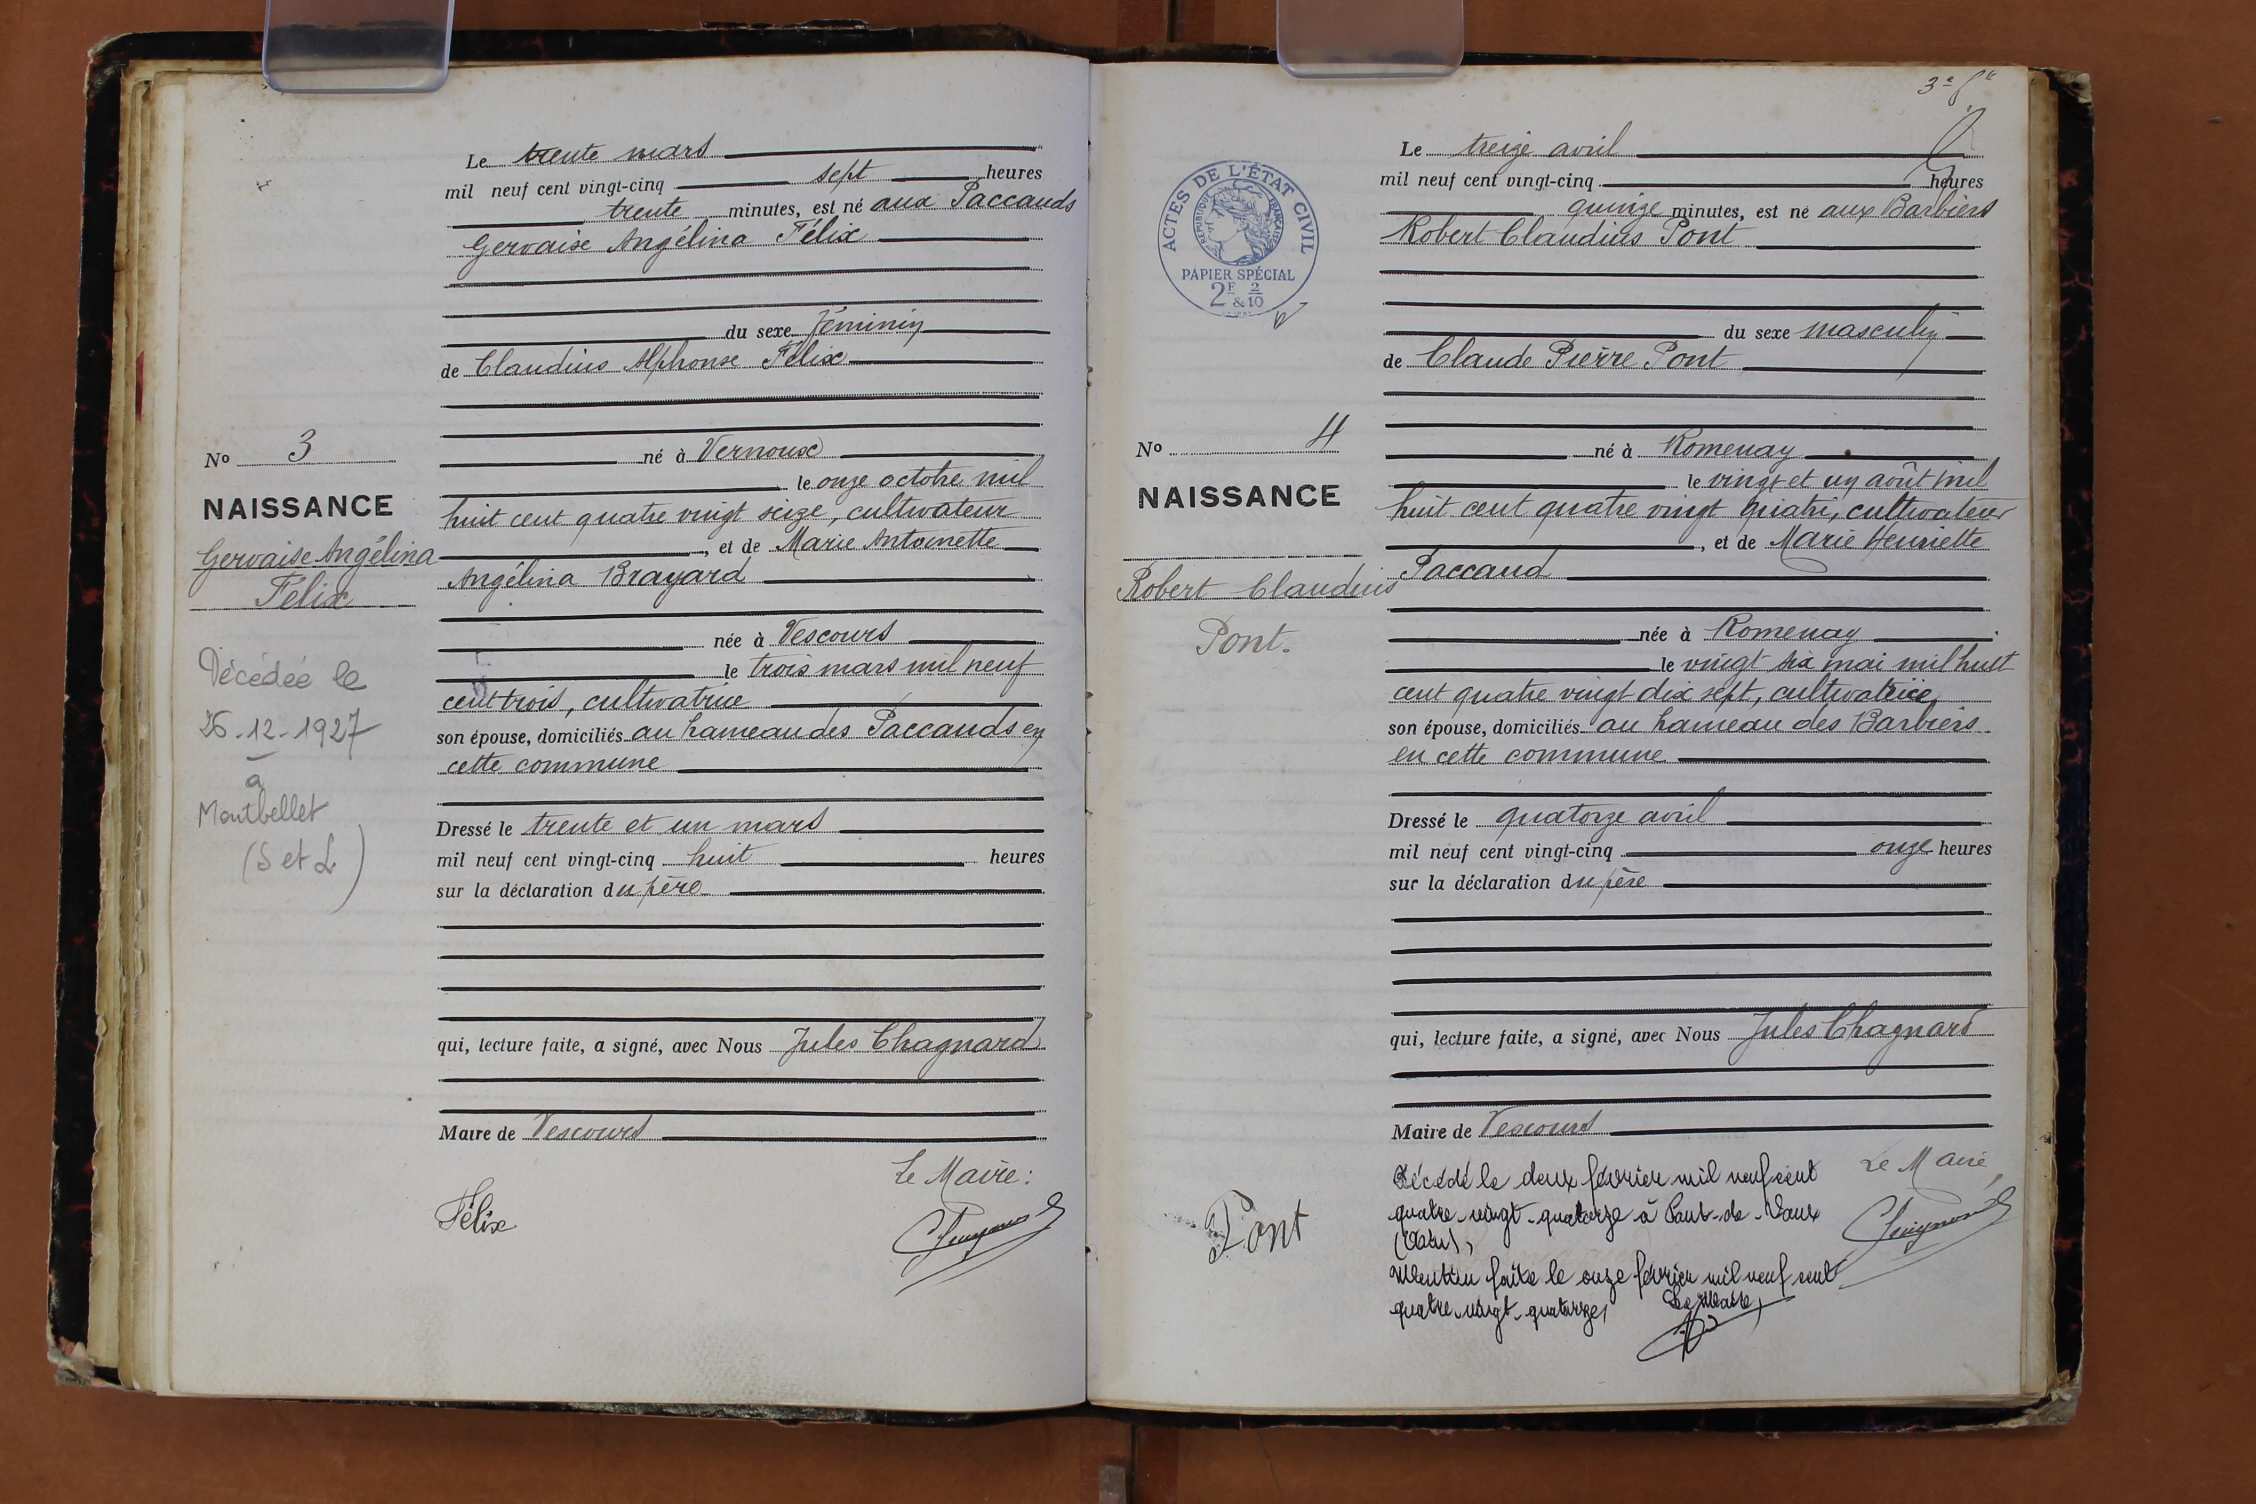 Le trente mars
mil neuf cent vingt-cinq sept heures
trente minutes, est né aux Paccauds
Gervaise Angélina Félix
du sexe féminin
de Claudius Alphonse Félix
No 3
né à Vernoux
le onze octobre mil
NAISSANCE
huit cent quatre vingt seize, cultivateur
Gervaise Angélina
Félix
, et de Marie Antoinette
Angélina Brayard
née à Vescours
Décédée le
26-12-1927
à
Montbellet
(S et L)
le trois mars mil neuf
cent trois, cultivatrice
son épouse, domiciliés au hameau des Paccauds en
cette commune
Dressé le trente et un mars
mil neuf cent vingt-cinq huit heures
sur la déclaration du père
qui, lecture faite, a signé, avec Nous Jules Chagnard
Maire de Vescours
Le Maire:
Félix
3e
ACTES DE L'ÉTAT CIVIL
RÉPUBLIQUE FRANÇAISE
PAPIER SPÉCIAL
2F & 2/10
Le treize avril
mil neuf cent vingt-cinq heures
quinze minutes, est né aux Barbiers
Robert Claudius Pont
du sexe masculin
de Claude Pierre Pont
No 4
né à Romenay
le vingt et un août mil
NAISSANCE
huit cent quatre vingt quatre, cultivateur
Robert Claudius
Pont.
, et de Marie Henriette
Paccaud
née à Romenay
le vingt six mai mil huit
cent quatre vingt dix sept, cultivatrice
son épouse, domiciliés au hameau des Barbiers
en cette commune
Dressé le quatorze avril
mil neuf cent vingt-cinq onze heures
sur la déclaration du père
qui, lecture faite, a signé, avec Nous Jules Chagnard
Maire de Vescours
Le Maire,
Pont
Décédé le deux février mil neuf cent
quatre-vingt-quatorze à Pont-de-Vaux
(Ain),
Mention faite le onze février mil neuf cent
quatre-vingt-quatorze,
Le Maire,